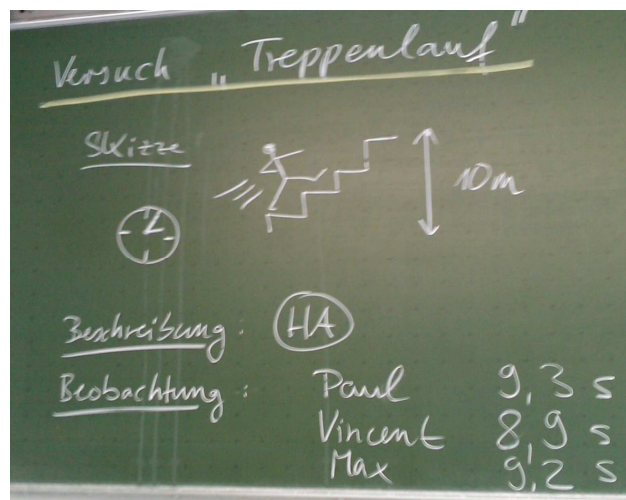 Versuch „Treppenlauf"
Skizze
10m
Beschreibung: HA
Beobachtung: Paul 9,3 s
Vincent 8,9 s
Max 9,2 s